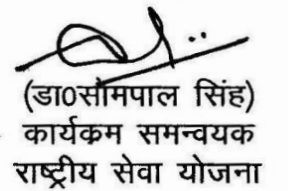 (डा0सोमपाल सिंह)
कार्यक्रम समन्वयक
राष्ट्रीय सेवा योजना